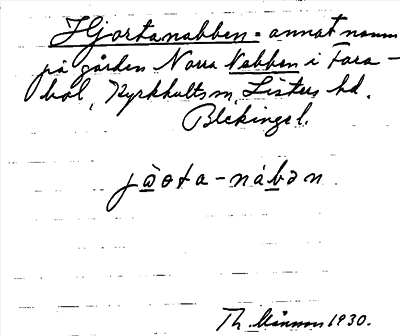 Hjortanabben = annat namn
på gården Norra Nabben i Fara-
bol, Kyrkhults sn, Listers hd.
Blekinge l.
jòta-nábən.
Th. 1930.